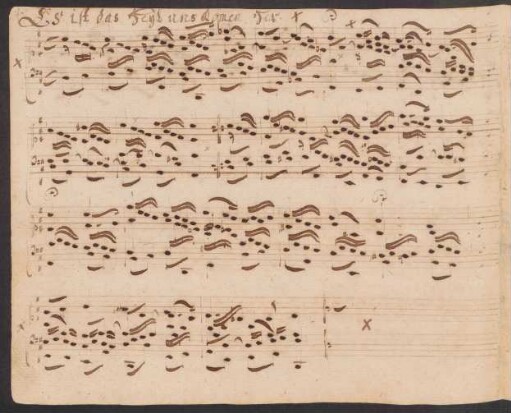 Es ist das Heyl uns komen her